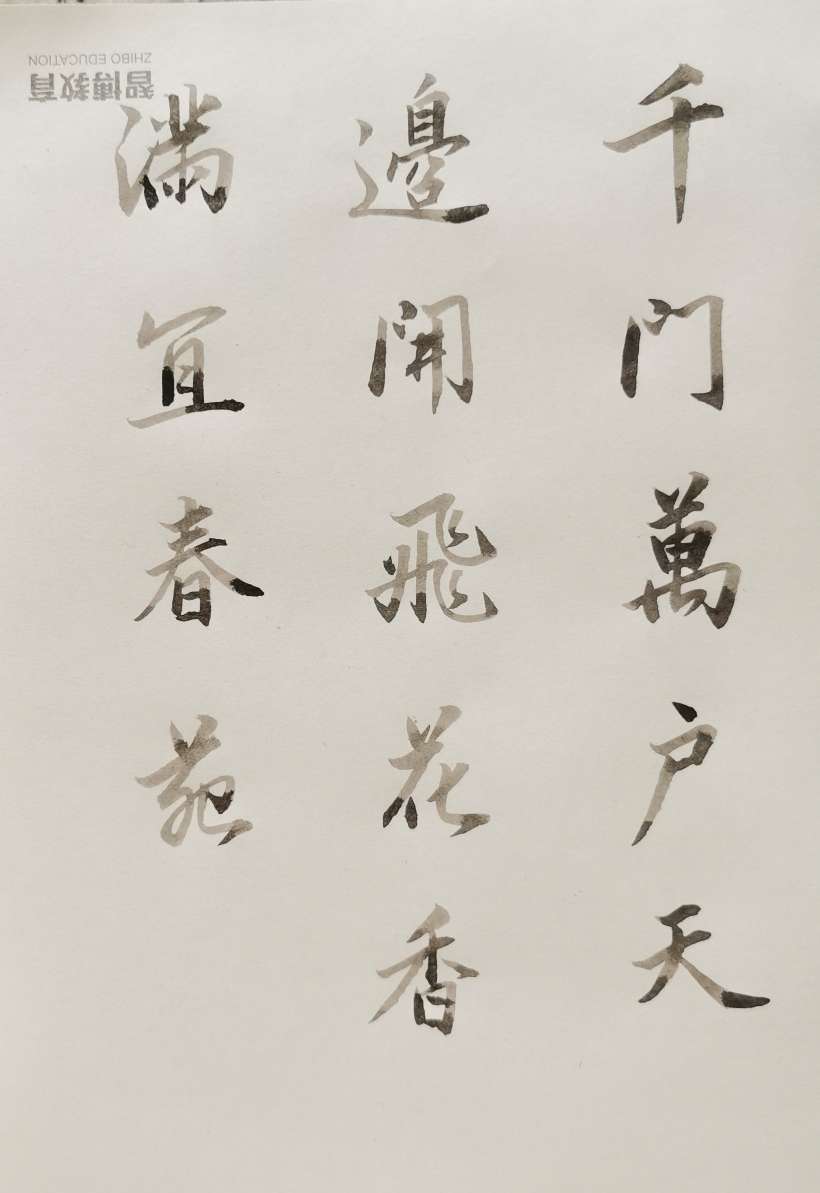 千門萬户天
邊開飛花香
滿宜春苑
智博教育
ZHIBO EDUCATION